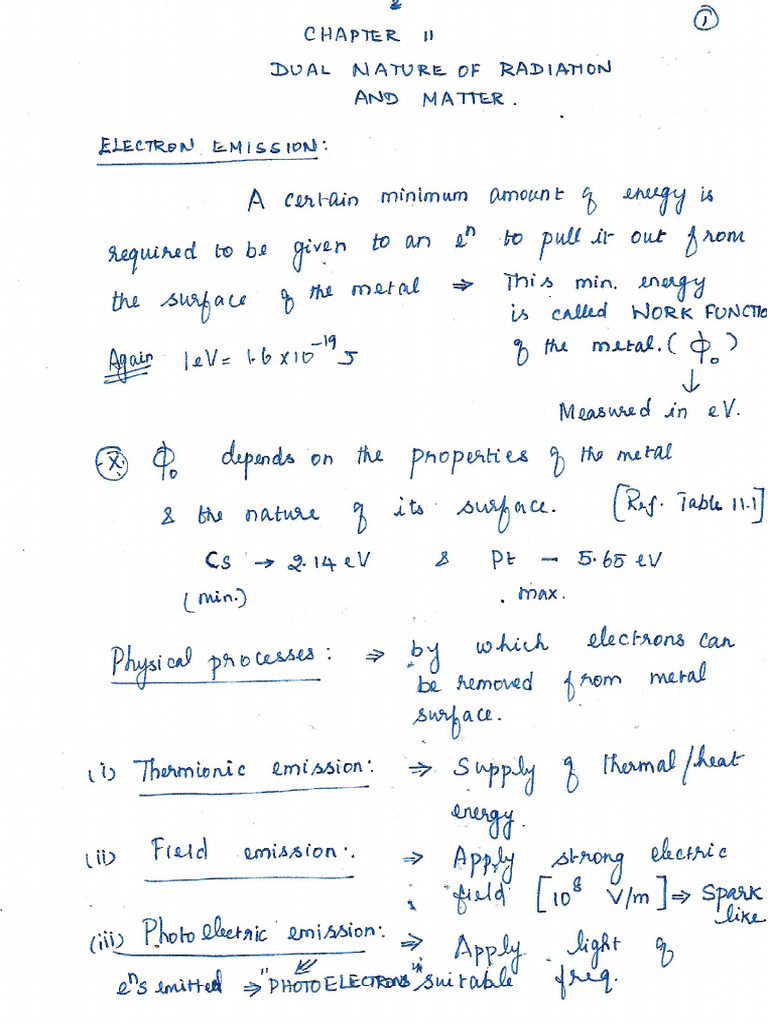 ①
CHAPTER 11
DUAL NATURE OF RADIATION
AND MATTER.
ELECTRON EMISSION:
A certain minimum amount of energy is
required to be given to an eⁿ to pull it out from
the surface of the metal ⇒ This min. energy
is called WORK FUNCTIO
of the metal. (ϕ₀)
Again 1eV = 1.6 × 10⁻¹⁹ J
↓
Measured in eV.
ϕ₀ depends on the properties of the metal
& the nature of its surface. [Ref. Table 11.1]
Cs → 2.14 eV & Pt – 5.65 eV
(min.) max.
Physical processes: ⇒ by which electrons can
be removed from metal
surface.
(i) Thermionic emission: ⇒ Supply of thermal/heat
energy.
(ii) Field emission: ⇒ Apply strong electric
field [10⁸ V/m] ⇒ Spark
like
(iii) Photoelectric emission: ⇒ Apply light of
eⁿs emitted ⇒ "PHOTOELECTRONS" suitable freq.